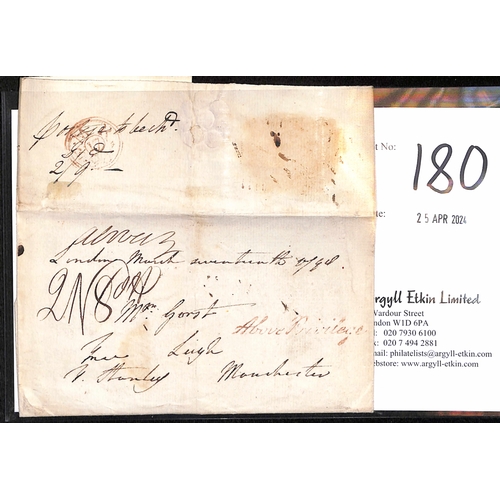 2/9
London March seventeenth 1798
2N8
Mrs Gorst
Above Privilege
Free Leigh
T. Stanley Manchester
t No: 180
te: 25 APR 2024
rgyll Etkin Limited
Wardour Street
ndon W1D 6PA
l: 020 7930 6100
x: 020 7 494 2881
mail: philatelists@argyll-etkin.com
ebstore: www.argyll-etkin.com